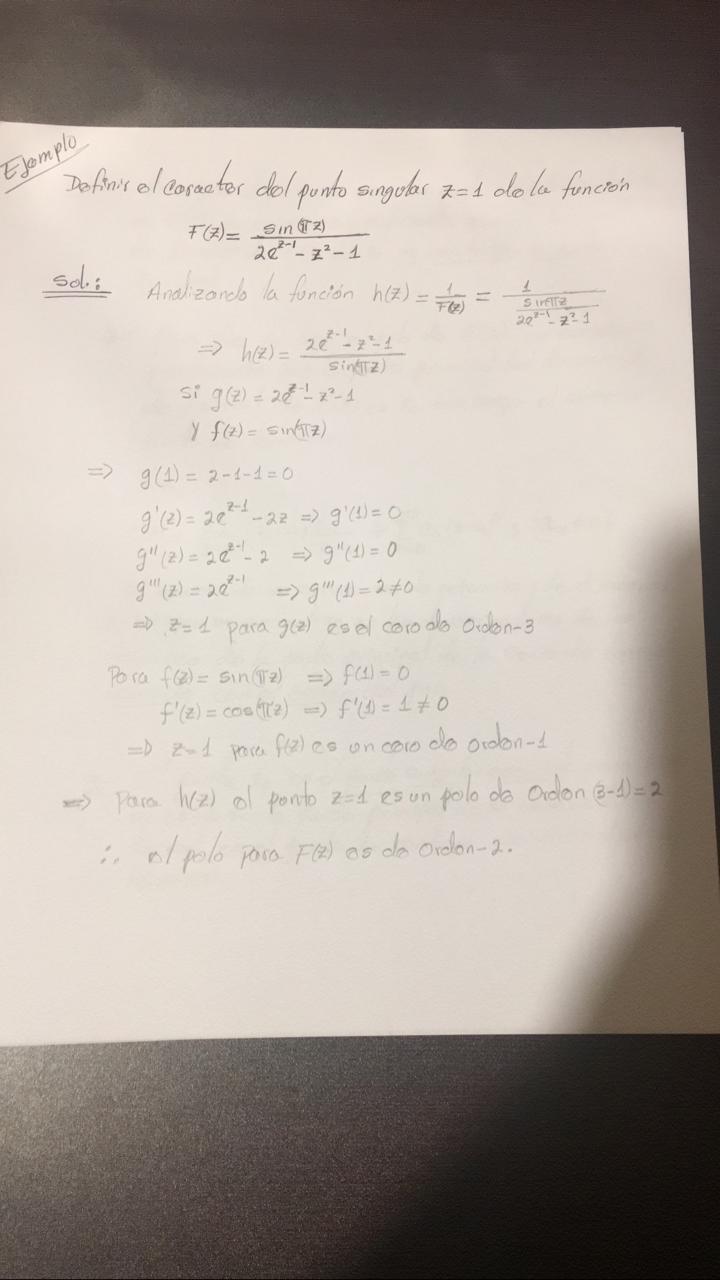 Ejemplo
Definir el caracter del punto singular z=1 de la función
F(z)= sin(πz) / 2e^{z-1} - z² - 1
Sol.: Analizando la función h(z) = 1/F(z) = 1 / (sinπz / 2e^{z-1} - z² - 1)
=> h(z) = 2e^{z-1} - z² - 1 / sin(πz)
si g(z) = 2e^{z-1} - z² - 1
y f(z) = sin(πz)
=> g(1) = 2-1-1=0
g'(z) = 2e^{z-1} - 2z => g'(1) = 0
g''(z) = 2e^{z-1} - 2 => g''(1) = 0
g'''(z) = 2e^{z-1} => g'''(1) = 2≠0
=> z=1 para g(z) es el cero de orden-3
Para f(z) = sin(πz) => f(1) = 0
f'(z) = cos(πz) => f'(1) = 1 ≠ 0
=> z=1 para f(z) es un cero de orden-1
=> Para h(z) el ponto z=1 es un polo de Orden (3-1)=2
∴ el polo para F(z) es de Orden-2.